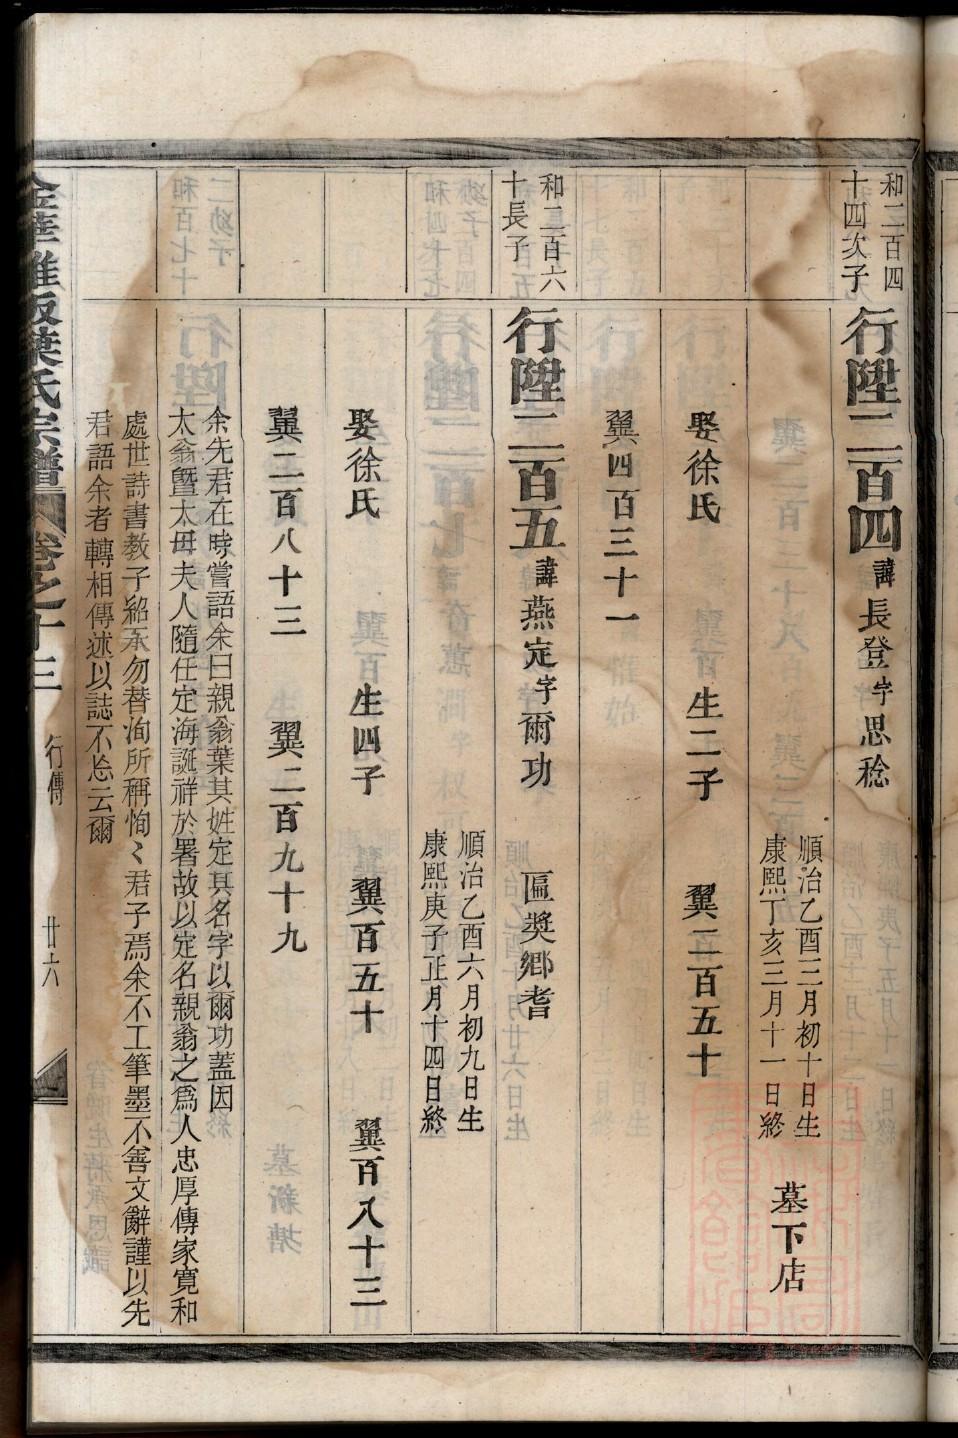 和二百四
十四次子
行陞二百四 諱長登字思稔
順治乙酉三月初十日生
康熙丁亥三月十一日終
墓下店
娶徐氏 生二子 翼二百五十
翼四百三十一
和二百六
十長子
行陞二百五 諱燕定字爾功 匾奬鄉耆
順治乙酉六月初九日生
康熙庚子正月十四日終
娶徐氏 生四子 翼百五十 翼百八十三
翼二百八十三 翼二百九十九
余先君在時嘗語余曰親翁葉其姓定其名字以爾功蓋因
太翁暨太毋夫人隨任定海誕祥於署故以定名親翁之爲人忠厚傳家寬和
處世詩書教子紹承勿替洵所稱恂〻君子焉余不工筆墨不善文辭謹以先
君語余者轉相傳述以誌不忘云爾
葉氏宗譜 卷之十三 行傳 廿六